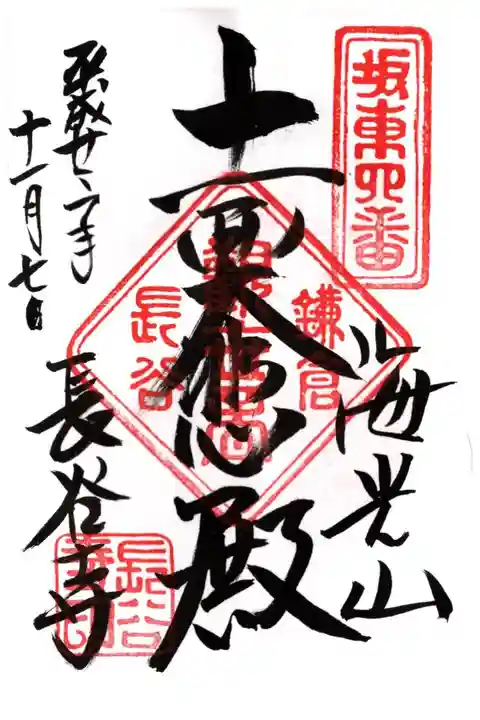 坂東四番
海光山
十一面大悲殿
鎌倉
長谷
平成廿六年
十一月七日
長谷寺
長谷